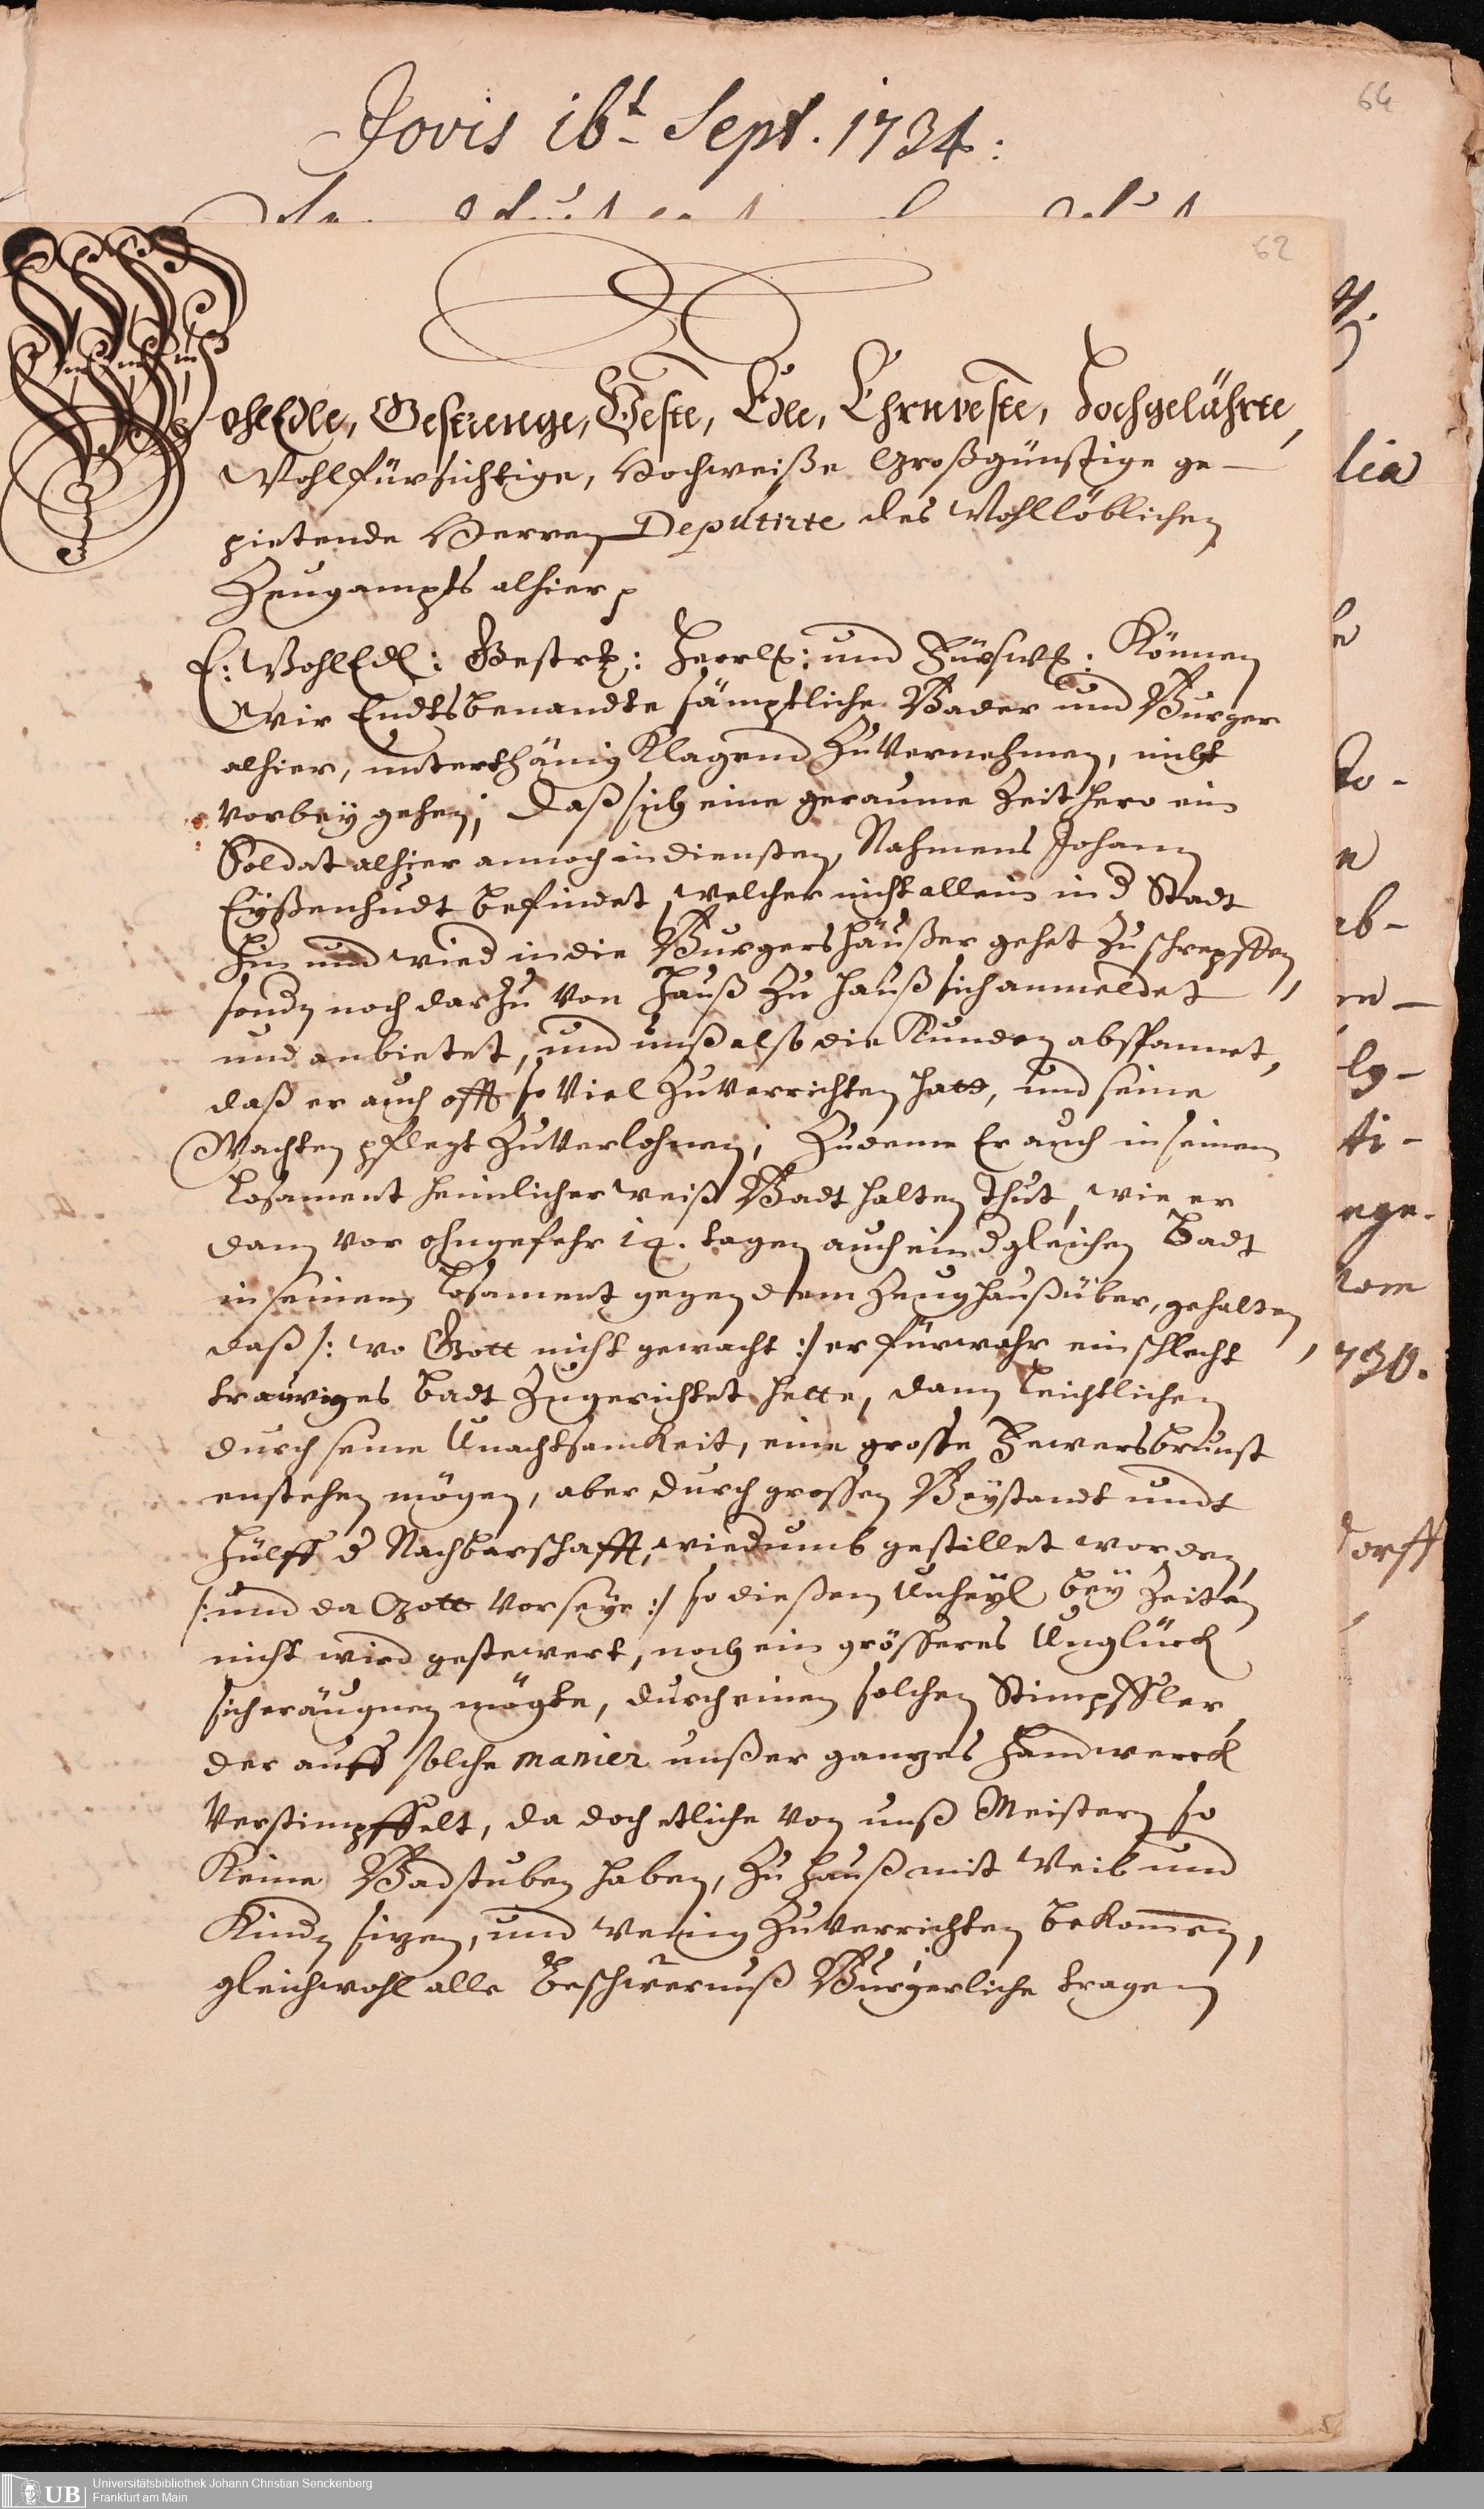 64
Jovis 16t Sept. 1734:
62
WohlEdle, Gestrenge, Veste, Edle, Ehrnveste, Hochgelährte,
Wohlfürsichtige, Hochweiße Großgünstige ge-
pietende Herren Deputirte des Wohllöblichen
Zeugampts alhier p
E: WohlEdl: Gestr: Herrl: und Fürsw: Können
Wir Endtsbenandte sämptliche Bader und Burger
alhier, unterthänig Klagend Zu Vernehmen, nicht
Vorbey gehen, daß sich eine geraume Zeithero ein
Soldat alhier annoch in diensten, Nahmens Johann
Eyßenhudt befindet, welcher nicht allein in d Stadt
hin und wied in die Burgershäußer gehet Zu schrepffen,
sondn noch darZu von Hauß Zu Hauß sich anmeldet
und anbietet, und unß also die Kunden abspannet,
daß er auch offt so Viel Zu Verrichten hatt, und seine
Wachten pflegt Zu Verlohnen; Zudeme Er auch in seinem
Losament heimlicher weiß Badt halten Thut, wie er
dann Vor ohngefehr 14. tagen auch ein dgleichen Badt
in seinem Losament gegen dem Zeughauß über, gehalten,
daß /: wo Gott nicht gewacht :/ er fürwahr ein schlecht
trauriges Badt Zugerichtet hette, dann leichtlichen
durch seine Unachtsamkeit, eine grosse Fewersbrunst
enstehen mögen, aber durch grossen Beystandt undt
Hülff d Nachbarschafft, wiedumb gestillet worden,
/: und da Gott Vorseye :/ so dießem Unheyl bey Zeiten
nicht wird gestewert, noch ein grösseres Unglück
sich eräugnen mögte, durch einen solchen Stimpffler,
der auff solche manier unßer ganzes Handwerck
Verstimpffelt, da doch etliche Von unß Meistern so
Keine Badstuben haben, Zu Hauß mit Weib und
Kindn sizen, und wenig Zu Verrichten bekommen,
gleichwohl alle Beschwernuß Bürgerliche tragen
lia
to-
n
ab-
ly-
ti-
ege-
730.
dorff
UB
Universitätsbibliothek Johann Christian Senckenberg
Frankfurt am Main